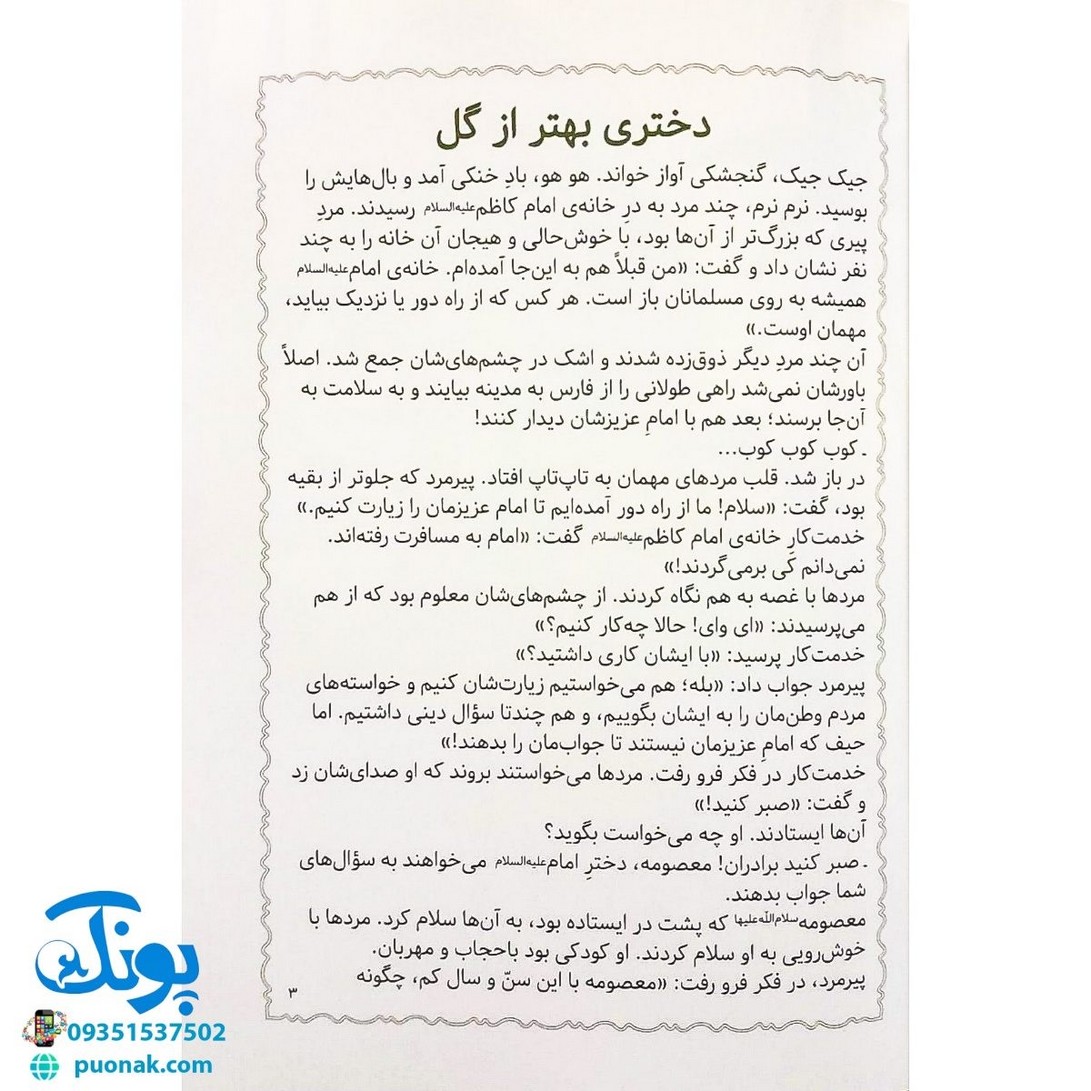 دختری بهتر از گل
جیک جیک، گنجشکی آواز خواند. هو هو، بادِ خنکی آمد و بال‌هایش را
بوسید. نرم نرم، چند مرد به درِ خانه‌ی امام کاظم علیه‌السلام رسیدند. مردِ
پیری که بزرگ‌تر از آن‌ها بود، با خوش‌حالی و هیجان آن خانه را به چند
نفر نشان داد و گفت: «من قبلاً هم به این‌جا آمده‌ام. خانه‌ی امام علیه‌السلام
همیشه به روی مسلمانان باز است. هر کس که از راه دور یا نزدیک بیاید،
مهمان اوست.»
آن چند مردِ دیگر ذوق‌زده شدند و اشک در چشم‌های‌شان جمع شد. اصلاً
باورشان نمی‌شد راهی طولانی را از فارس به مدینه بیایند و به سلامت به
آن‌جا برسند؛ بعد هم با امامِ عزیزشان دیدار کنند!
ـ کوب کوب کوب...
در باز شد. قلب مردهای مهمان به تاپ‌تاپ افتاد. پیرمرد که جلوتر از بقیه
بود، گفت: «سلام! ما از راه دور آمده‌ایم تا امام عزیزمان را زیارت کنیم.»
خدمت‌کارِ خانه‌ی امام کاظم علیه‌السلام گفت: «امام به مسافرت رفته‌اند.
نمی‌دانم کَی برمی‌گردند!»
مردها با غصه به هم نگاه کردند. از چشم‌های‌شان معلوم بود که از هم
می‌پرسیدند: «ای وای! حالا چه‌کار کنیم؟»
خدمت‌کار پرسید: «با ایشان کاری داشتید؟»
پیرمرد جواب داد: «بله؛ هم می‌خواستیم زیارت‌شان کنیم و خواسته‌های
مردم وطن‌مان را به ایشان بگوییم، و هم چندتا سؤال دینی داشتیم. اما
حیف که امامِ عزیزمان نیستند تا جواب‌مان را بدهند!»
خدمت‌کار در فکر فرو رفت. مردها می‌خواستند بروند که او صدای‌شان زد
و گفت: «صبر کنید!»
آن‌ها ایستادند. او چه می‌خواست بگوید؟
ـ صبر کنید برادران! معصومه، دخترِ امام علیه‌السلام می‌خواهند به سؤال‌های
شما جواب بدهند.
معصومه سلام‌اللّه‌علیها که پشت در ایستاده بود، به آن‌ها سلام کرد. مردها با
خوش‌رویی به او سلام کردند. او کودکی بود باحجاب و مهربان.
پیرمرد، در فکر فرو رفت: «معصومه با این سنّ و سال کم، چگونه
۳
پونک
09351537502
puonak.com